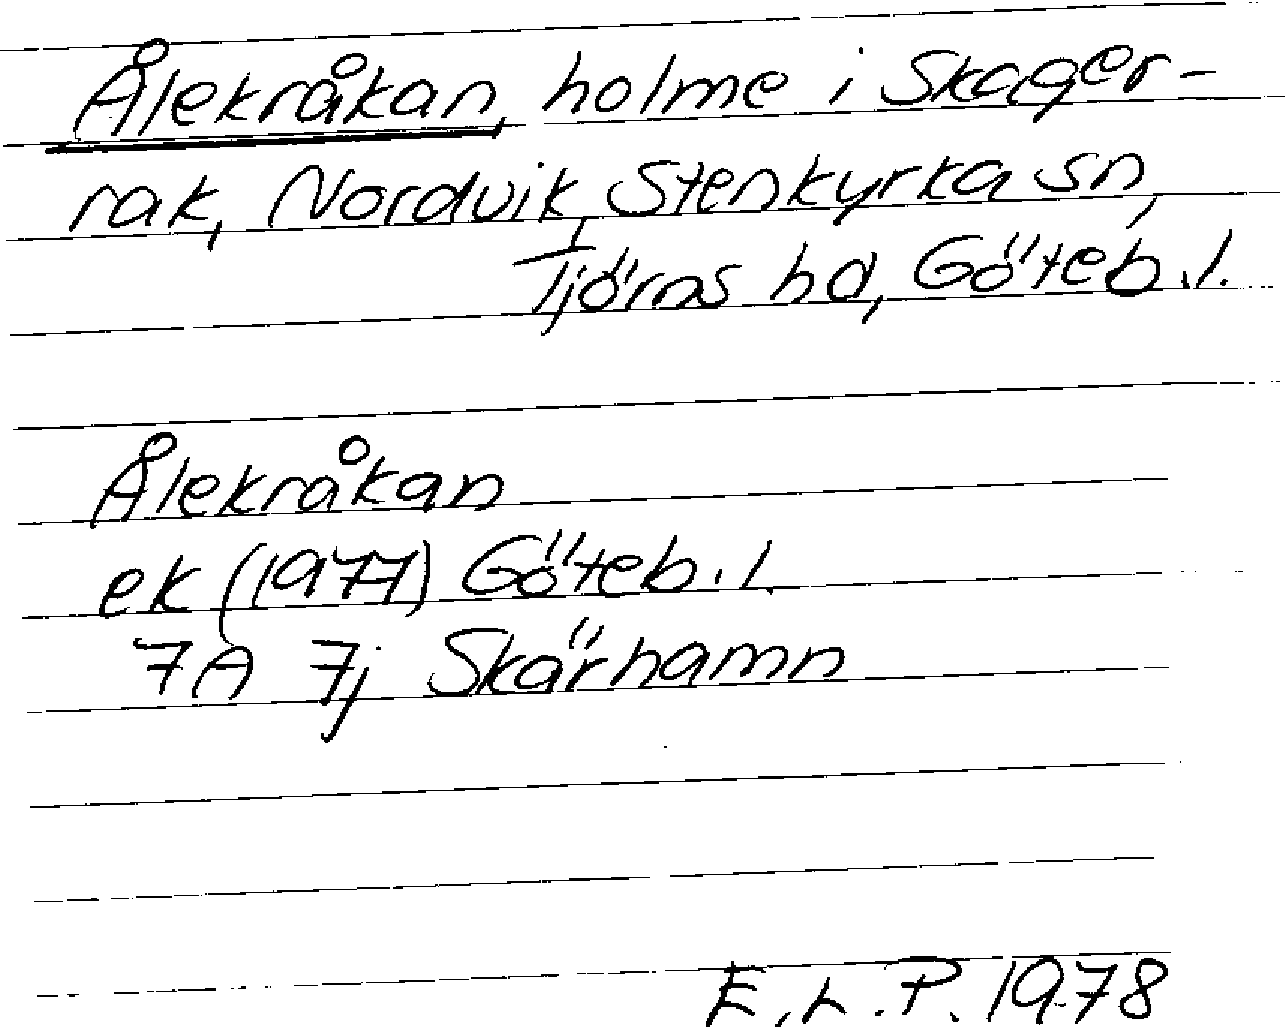 Ålekråkan, holme i Skager-
rak, Nordvik, Stenkyrka sn,
Tjörns hd, Göteb.l.
Ålekråkan
ek (1977) Göteb.l.
7A 7j Skärhamn
E.L.P. 1978